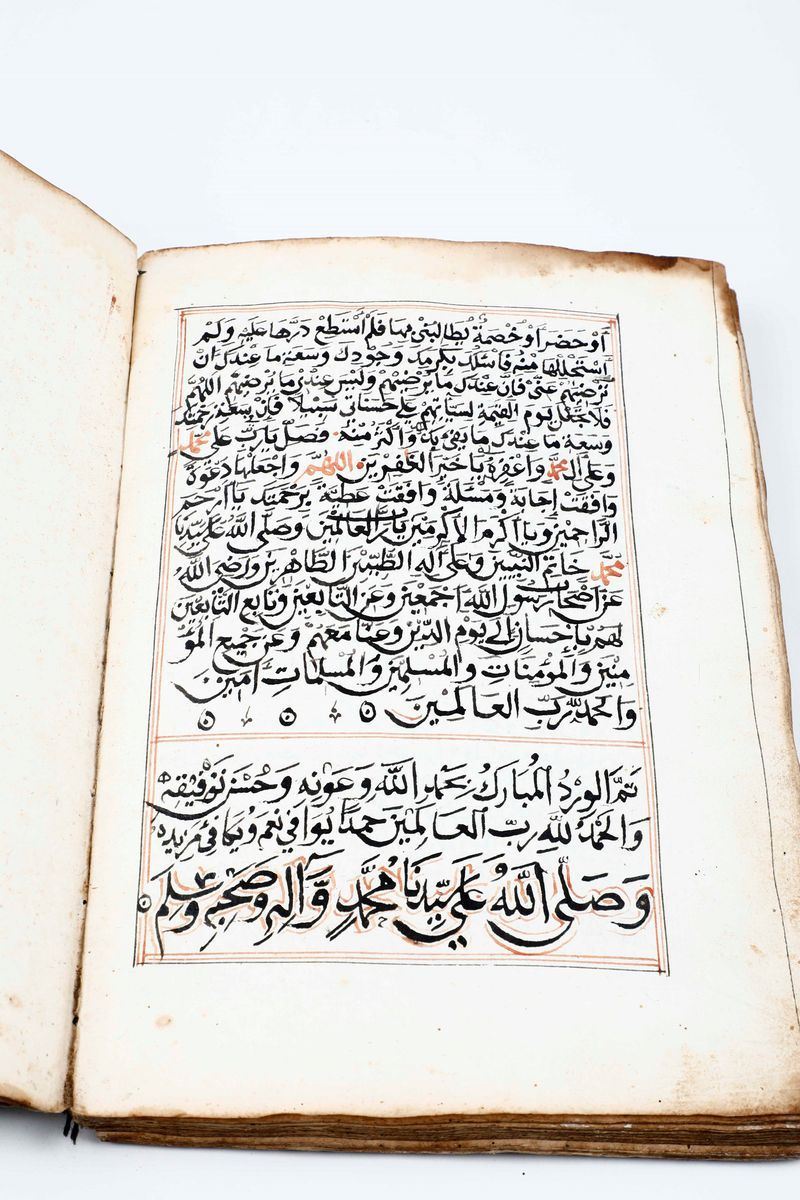 أو حضر أو خصمة يطالبني بها فلم أستطع ردها عليه ولم
أستحللها منه فاسئلك بكرمك وجودك وسعة ما عندك ان
ترضيهم عني فان عندك ما يرضيهم وليس عندي ما يرضيهم اللهم
فلا تجعل يوم القيمة لسياتهم على حسناتي سبيلا فان سعة رحمتك
وسعة ما عندك ما يفي بذلك وأكثر منه وصل يا رب على محمد
وعلى ال محمد واغفره يا خير الغفرين اللهم واجعلها دعوة
وافقت إجابة ومسئلة وافقت عطية برحمتك يا أرحم
الراحمين ويا أكرم الاكرمين يا رب العالمين وصلى الله على سيدنا
محمد خاتم النبيين وعلى اله الطيبين الطاهرين ورضي الله
عن أصحاب رسول الله أجمعين وعن التابعين وتابع التابعين
لهم بإحسان الى يوم الدين وعنا معهم وعن جميع المؤ
منين والمؤمنات والمسلمين والمسلمات امين
والحمد لله رب العالمين
تم الورد المبارك بحمد الله وعونه وحسن توفيقه
والحمد لله رب العالمين حمدا يوافي نعمه ويكافئ مزيده
وصلى الله على سيدنا محمد وآله وصحبه وسلم